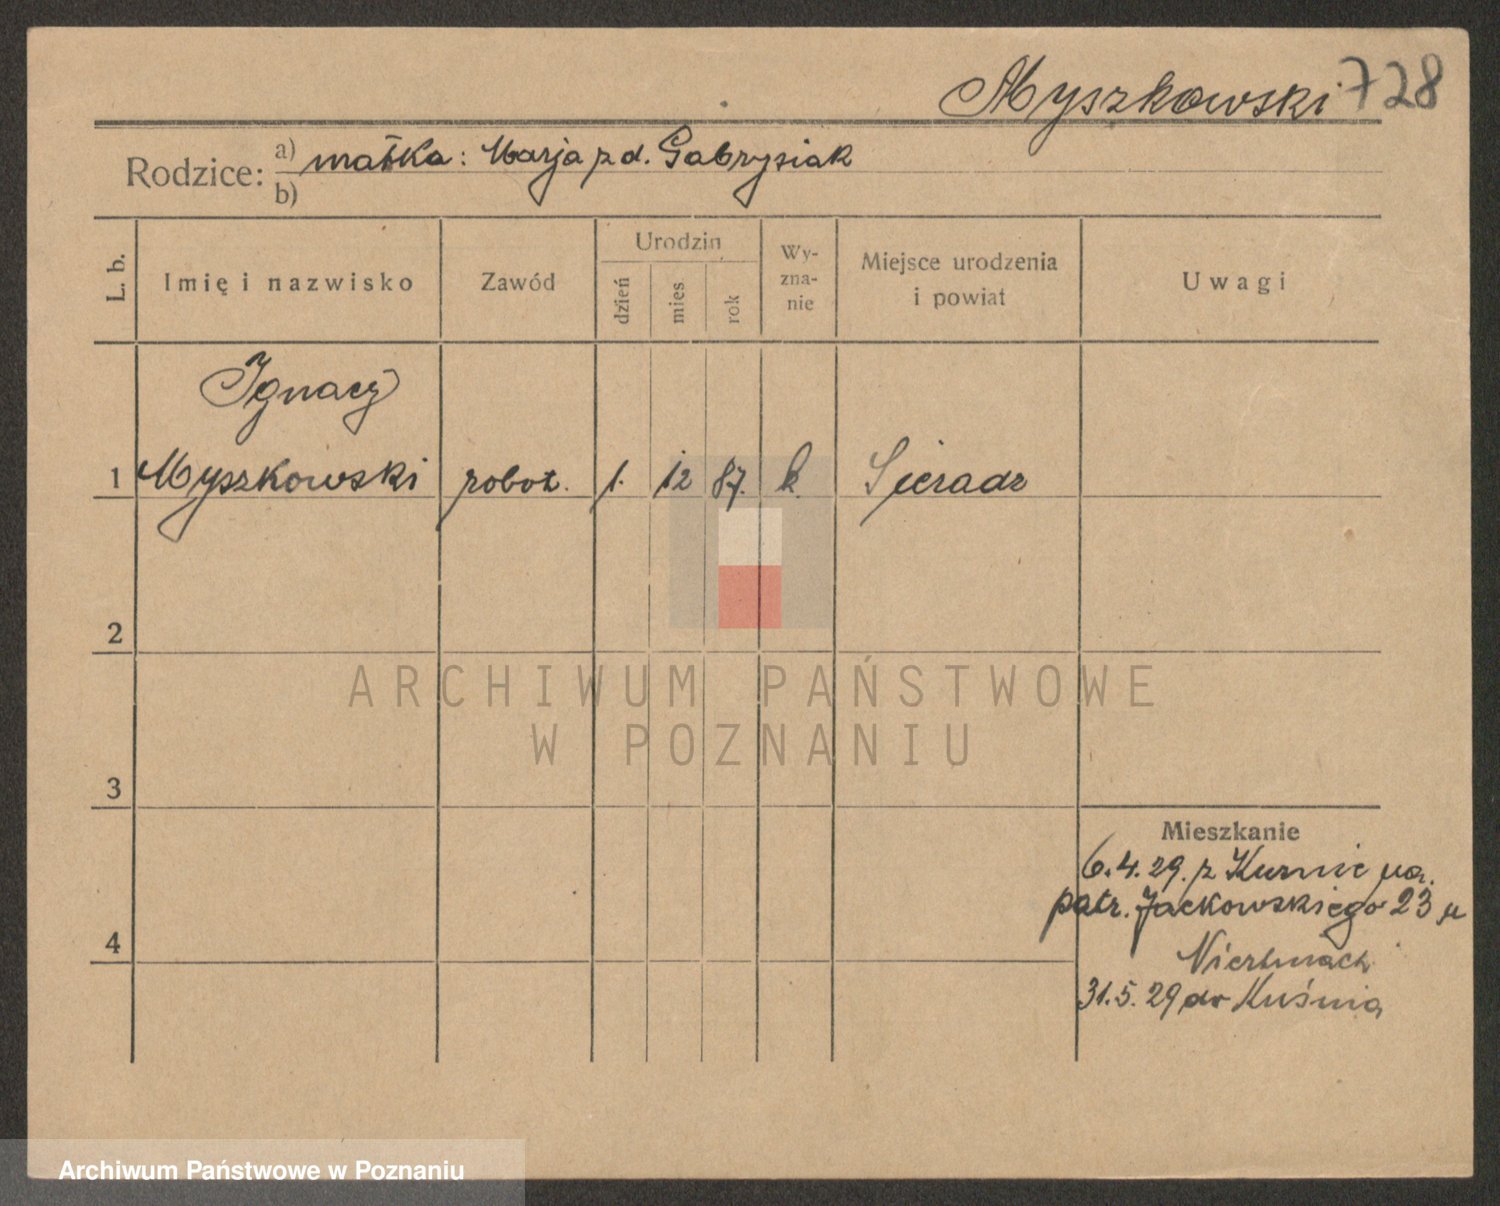 Myszkowski 728
Rodzice: a) matka: Marja z d. Gabrysiak
b)
L. b.
Imię i nazwisko
Zawód
Urodzin
dzień
mies.
rok
Wy-
zna-
nie
Miejsce urodzenia
i powiat
Uwagi
Ignacy
1 Myszkowski robot. 1. 12 87. k. Sieradz
2
3
4
Mieszkanie
6.4.29. z
patr. Jackowskiego 23 u
31.5.29 do
ARCHIWUM PAŃSTWOWE
W POZNANIU
Archiwum Państwowe w Poznaniu